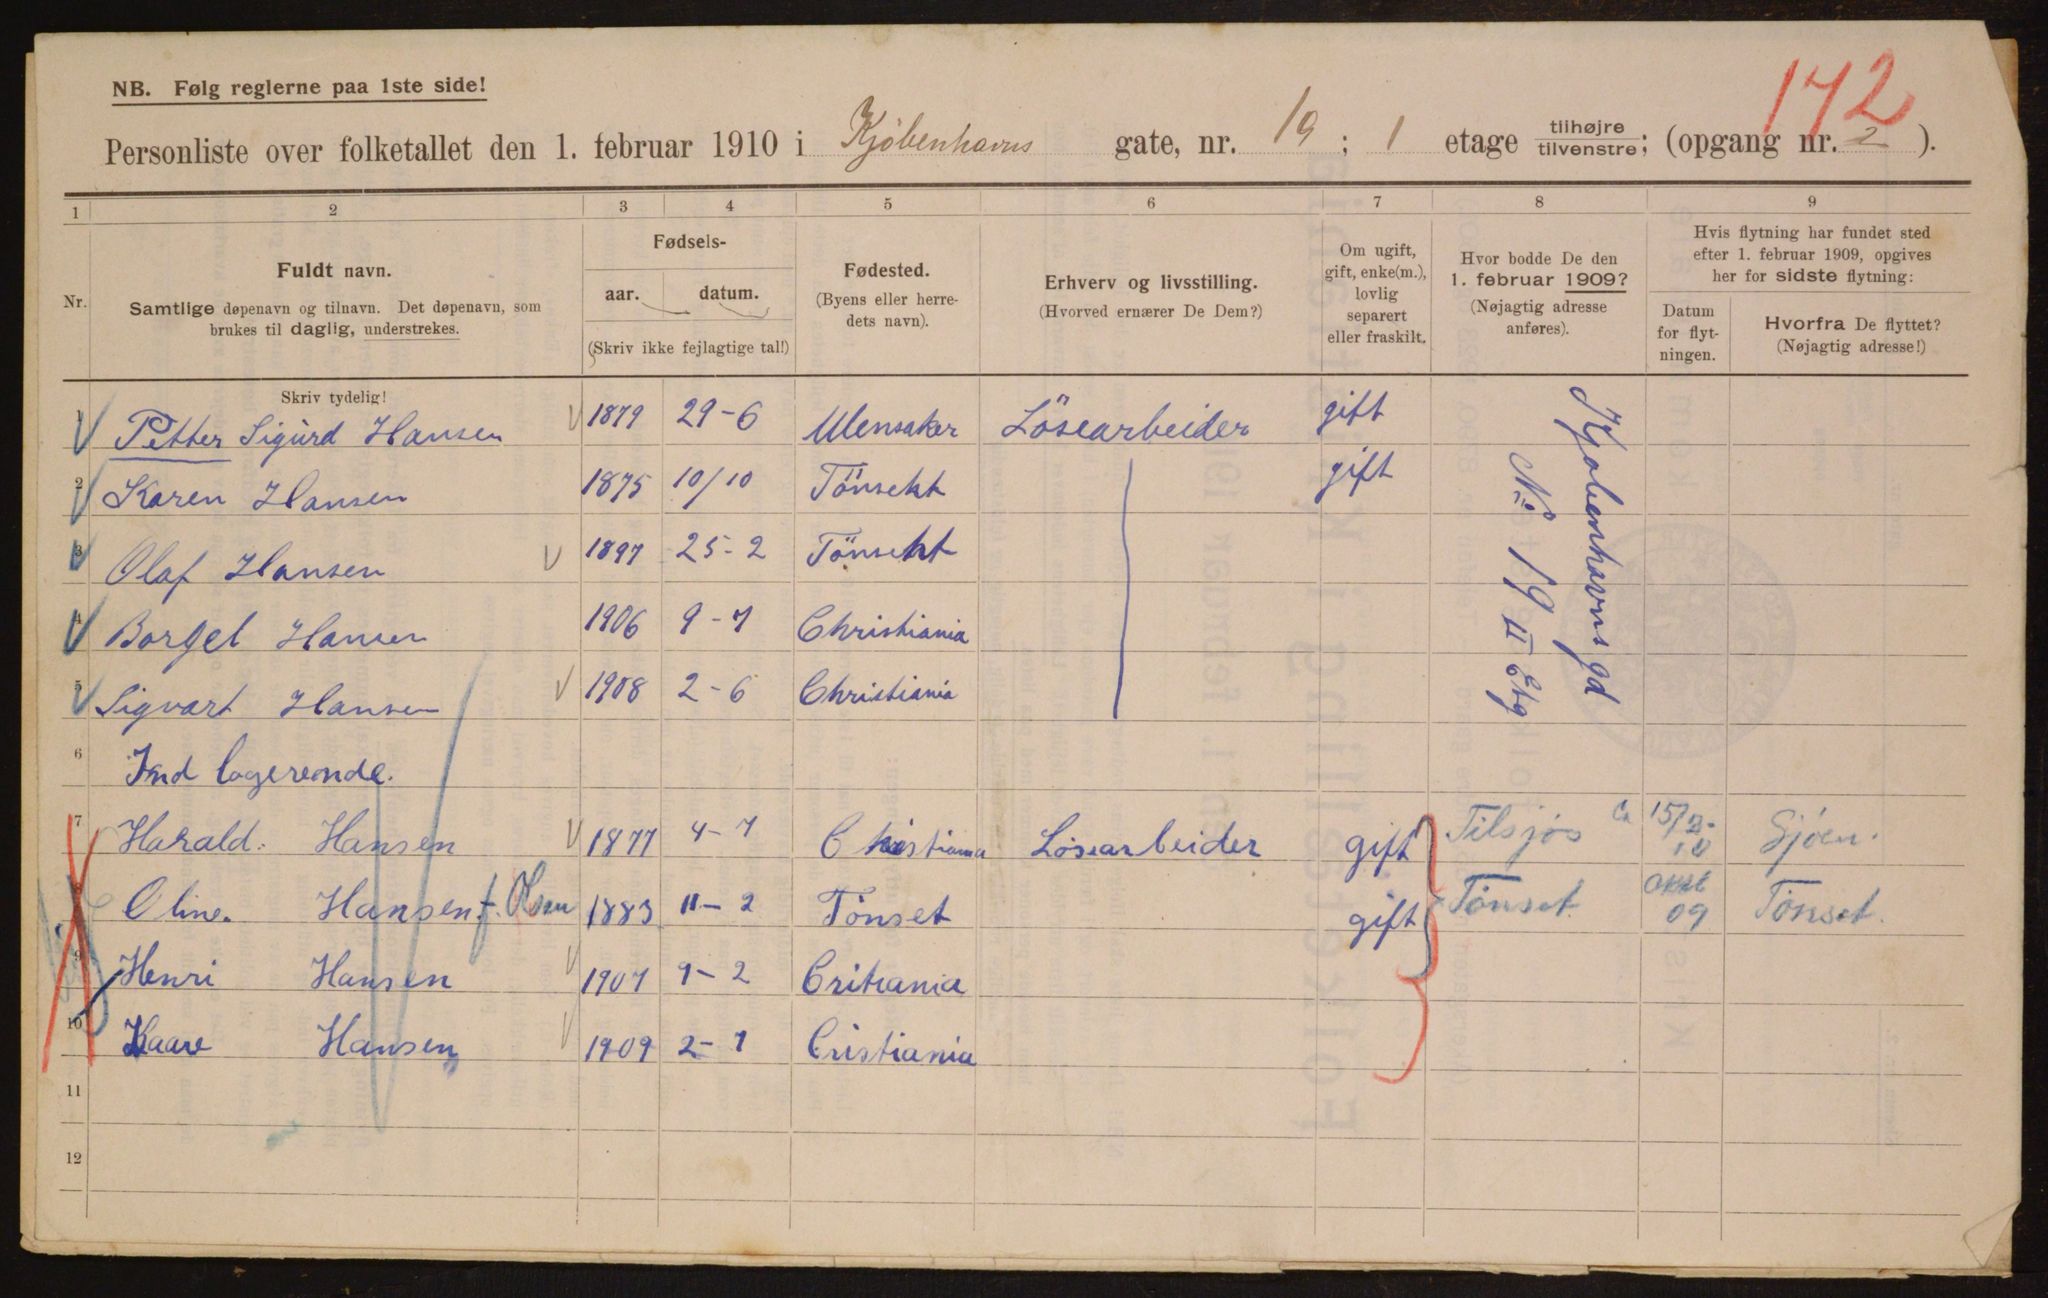 NB. Følg reglerne paa 1ste side!
172
Personliste over folketallet den 1. februar 1910 i Kjøbenhavns gate, nr. 19 ; 1 etage tilhøjre tilvenstre; (opgang nr. 2 ).
1 2 3 4 5 6 7 8 9
Nr.
Fuldt navn.
Samtlige døpenavn og tilnavn. Det døpenavn, som
brukes til daglig, understrekes.
Fødsels-
aar. datum.
(Skriv ikke fejlagtige tal!)
Fødested.
(Byens eller herre-
dets navn).
Erhverv og livsstilling.
(Hvorved ernærer De Dem?)
Om ugift,
gift, enke(m.),
lovlig
separert
eller fraskilt.
Hvor bodde De den
1. februar 1909?
(Nøjagtig adresse
anføres).
Hvis flytning har fundet sted
efter 1. februar 1909, opgives
her for sidste flytning:
Datum
for flyt-
ningen.
Hvorfra De flyttet?
(Nøjagtig adresse!)
Skriv tydelig!
1 Petter Sigurd Hansen 1879 29-6 Ulensaker Lösearbeider gift
Kjøbenhavns gd
No 19 II Etg
2 Karen Hansen 1875 10/10 Tönsekt gift
3 Olaf Hansen 1897 25-2 Tönsekt
4 Borgel Hansen 1906 9-7 Christiania
5 Sigvart Hansen 1908 2-6 Christiania
6 Ind logerende.
7 Harald. Hansen 1877 4-7 Christiania Løsearbeider gift Tilsjøs Ca 15/2-10 Sjöen.
8 Oline. Hansen f. Olsen 1883 11-2 Tönset gift Tönset. Okt 09 Tönset.
9 Henri Hansen 1907 9-2 Critiania
10 Kaare Hansen 1909 2-7 Cristiania
11
12